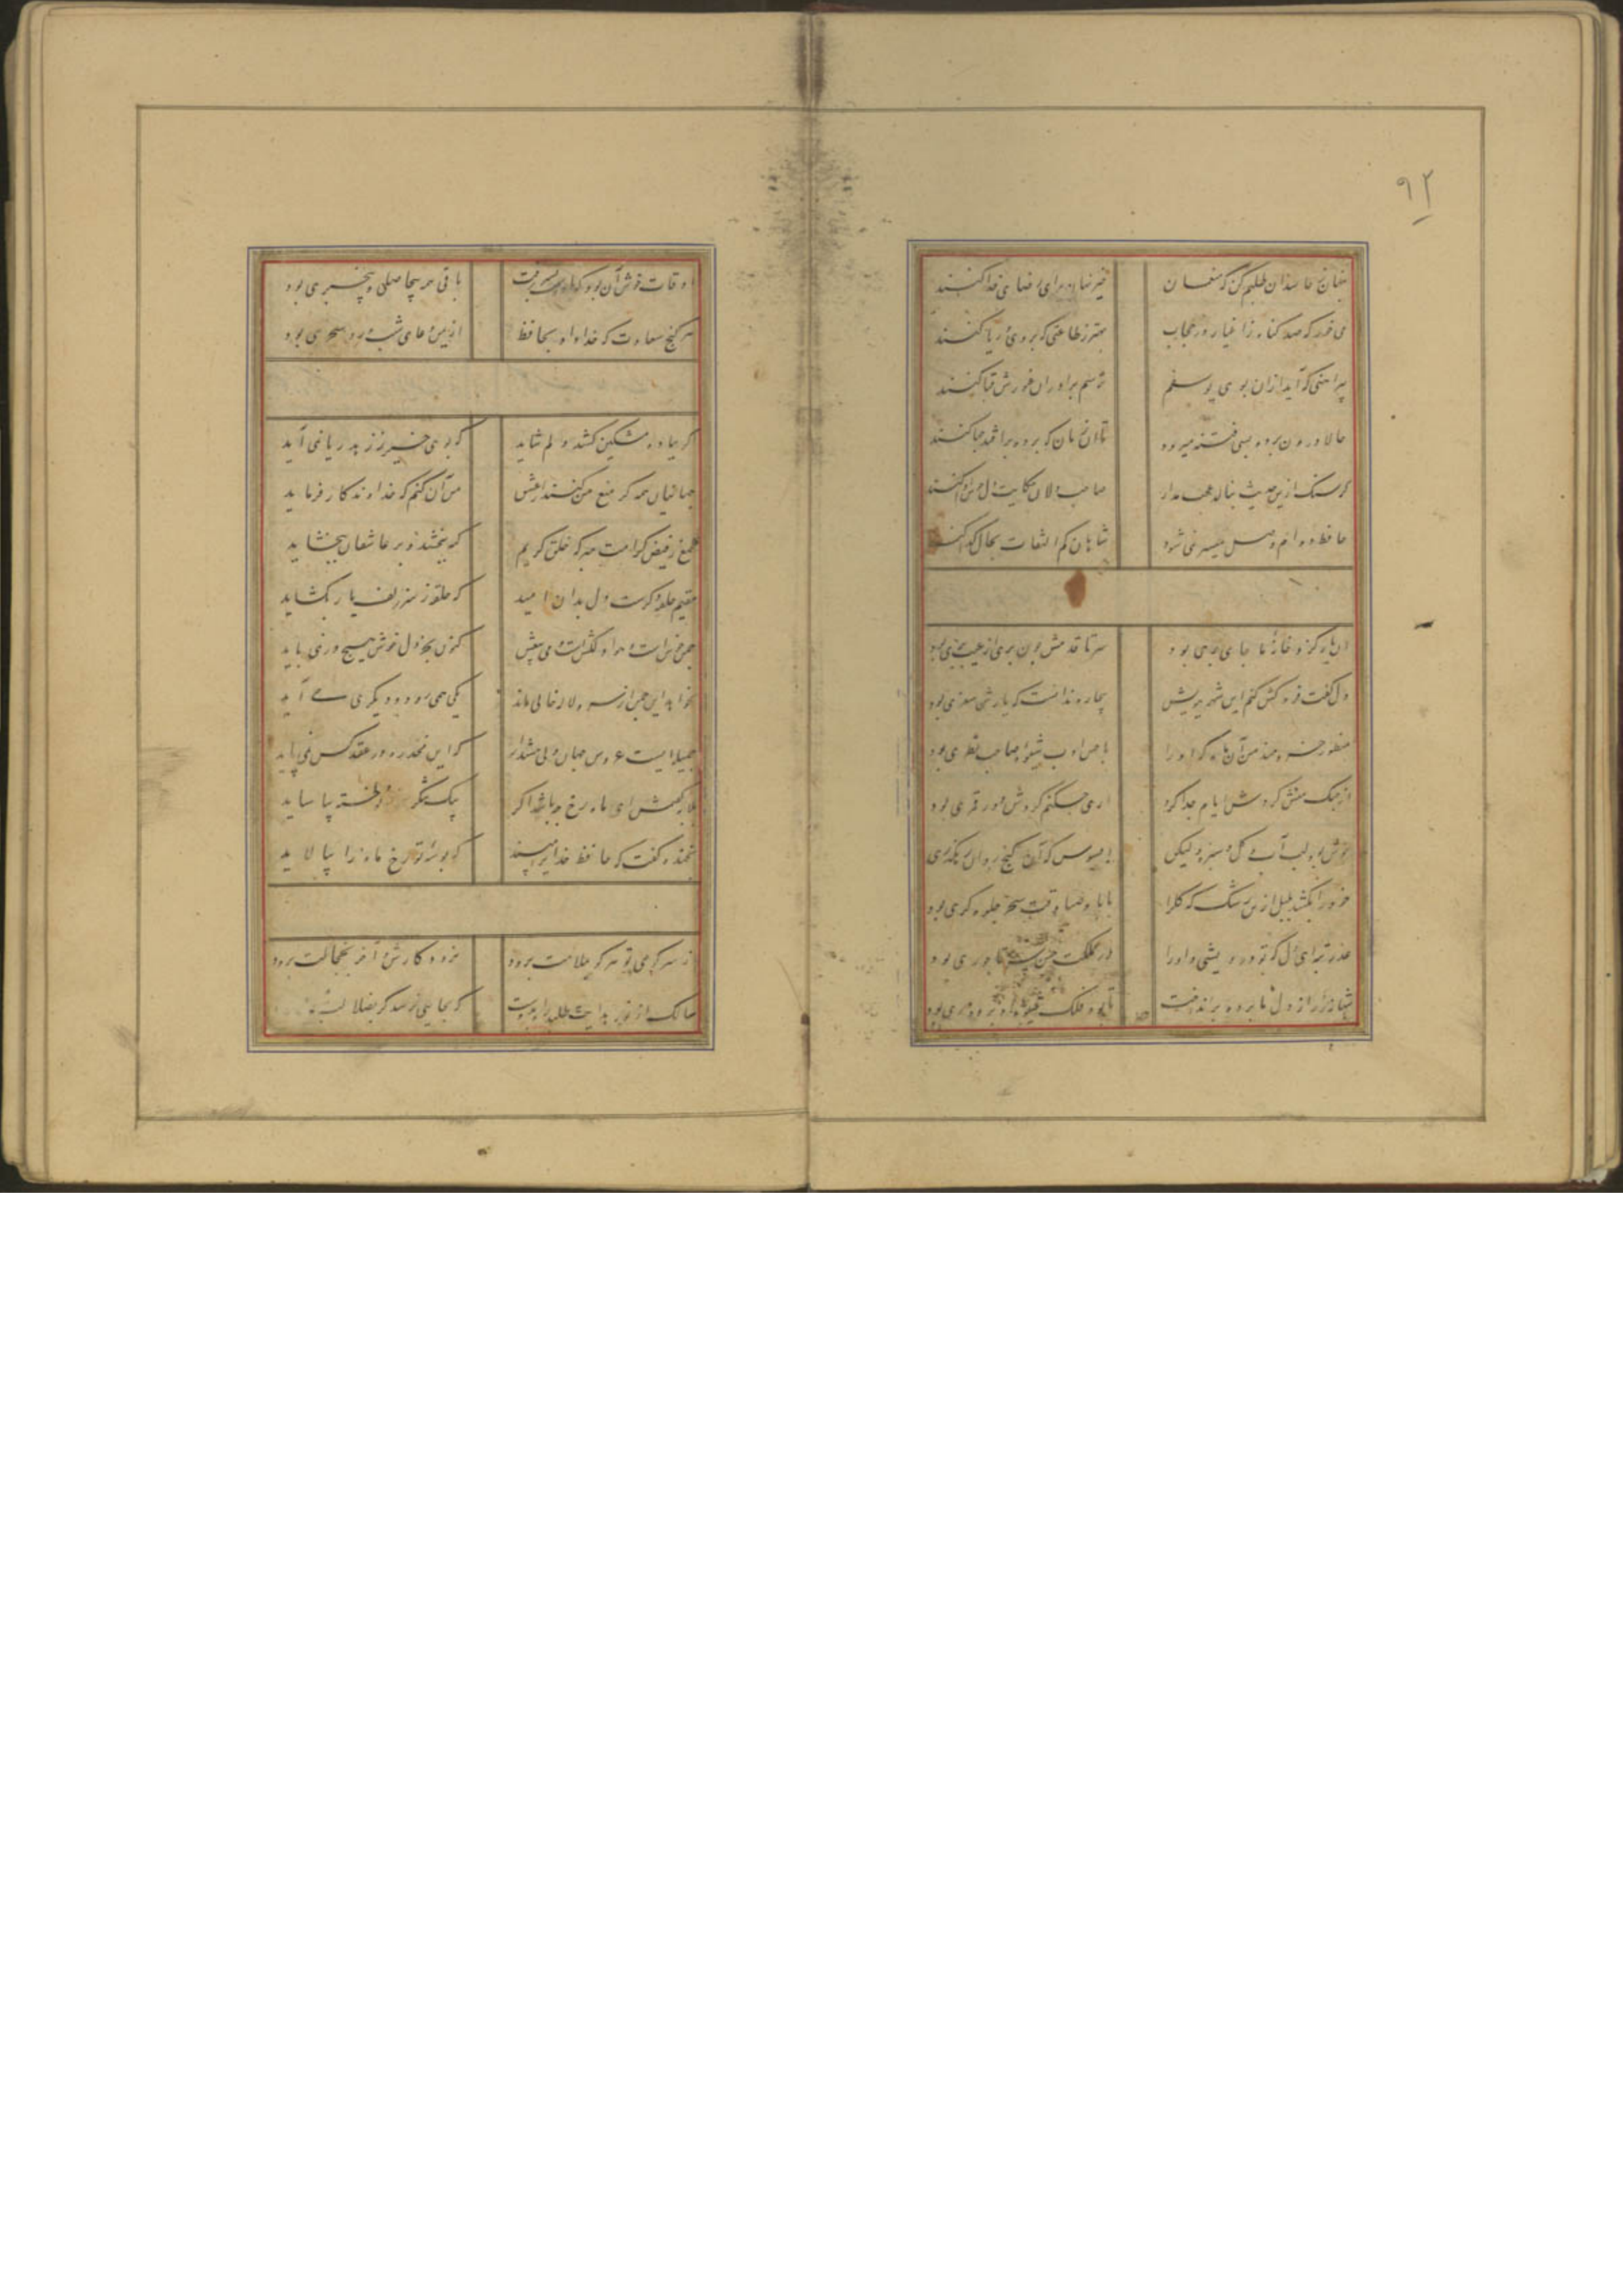 ۹۲
پنهان ز حاسدان طلبم کن که منعمان خیر نهان برای رضای خدا کنند
می خور که صد کناه ز اغیار در حجاب بهتر ز طاعتی که بروی و ریا کنند
پیراهنی که آید ازان بوی یوسفم ترسم برادران غیورش قبا کنند
حالا درون پرده بسی فتنه میرود تا آن زمان که پرده برافتد چها کنند
کر سنک ازین حدیث بنالد عجب مدار صاحب دلان حکایت دل خوش ادا کنند
حافظ دوام وصل میسر نمی شود شاهان کم التفات بحال کدا کنند
آن یار کزو خانهٔ ما جای پری بود سر تا قدمش چون پری از عیب بری بود
دل کفت فروکش کنم این شهر ببویش بیچاره ندانست که یارش سفری بود
منظور خردمند من آن ماه که او را با حسن ادب شیوهٔ صاحب نظری بود
از چنک منش کردش ایام جدا کرد آری چکنم کردش دور قمری بود
خوش بود لب آب و کل و سبزه ولیکن افسوس که آن کنج روان رهکذری بود
خود را بکشد بلبل ازین رشک که کل را با باد صبا وقت سحر جلوه کری بود
عذری بنه ای دل که تو درویشی و او را در مملکت حسن سر تاجوری بود
اوقات خوش آن بود که با دوست بسر رفت باقی همه بیحاصلی و بیخبری بود
هر کنج سعادت که خدا داد بحافظ از یمن دعای شب و ورد سحری بود
اکر بباده مشکین کشد دلم شاید که بوی خیر ز زهد ریا نمی آید
جهانیان همه کر منع من کنند از عشق من آن کنم که خداوندکار فرماید
طمع ز فیض کرامت مبر که خلق کریم کنه ببخشد و بر عاشقان ببخشاید
مقیم حلقهٔ ذکرست دل بدان امید که حلقهٔ ز سر زلف یار بکشاید
چمن خوش است و هوا دلکش است و می بیغش کنون بجز دل خوش هیچ در نمی باید
نخواهد این چمن از سرو و لاله خالی ماند یکی همی رود و دیکری همی آید
جمیله ایست عروس جهان ولی هشدار که این مخدره در عقد کس نمی پاید
بلابه کفتمش ای ماه رخ چه باشد اکر بیک شکر ز تو دلخستهٔ بیاساید
بخنده کفت که حافظ خدایرا مپسند که بوسهٔ تو رخ ماه را بیالاید
از سر کوی تو هر کو بملامت برود نرود کارش و آخر بخجالت برود
سالک از نور هدایت طلبد راه بدوست که بجایی نرسد کر بضلالت